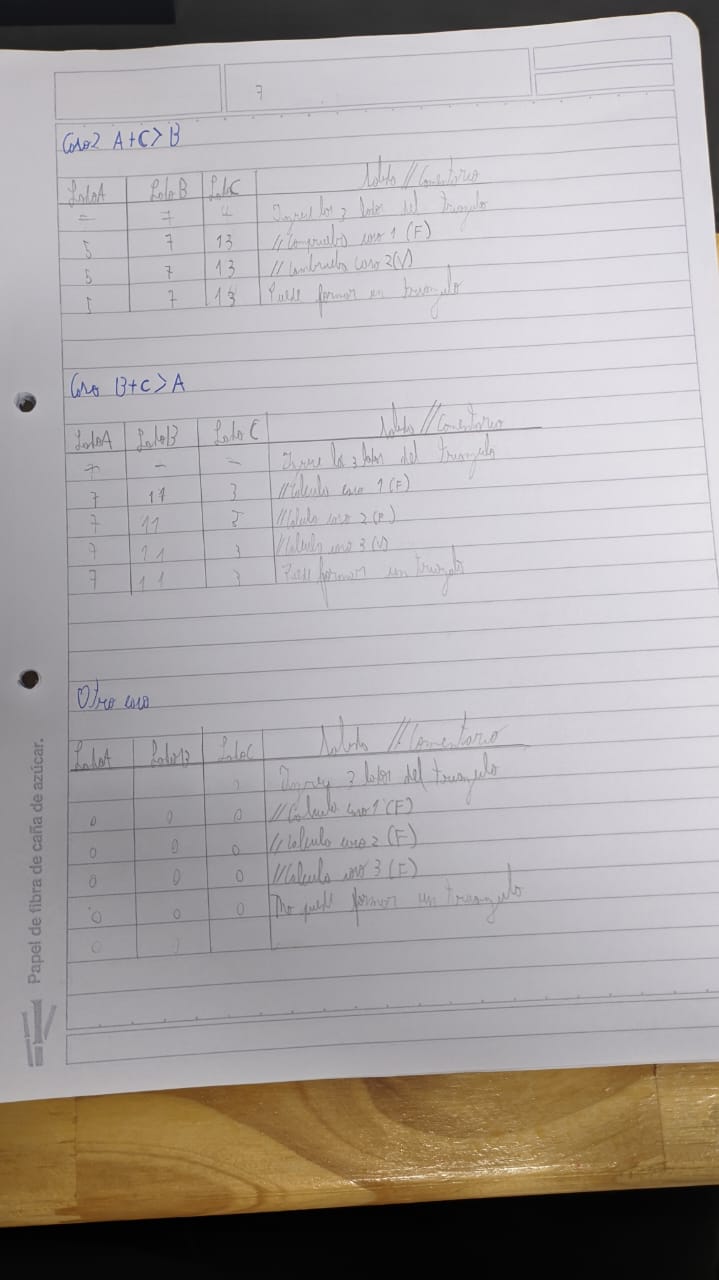 7
Caso 2 A+C>B
LadoA LadoB LadoC Salida // Comentario
= 7 Ingrese los 3 lados del triangulo
5 7 13 // Comprueba caso 1 (F)
5 7 13 // caso 2 (V)
5 7 13 Puede formar un triangulo
Caso B+C>A
LadoA LadoB Lado C Salida // Comentario
7 - - Ingrese los 3 lados del triangulo
7 11 3 // Calculo caso 1 (F)
7 11 // Calculo caso 2 (F)
7 11 3 // Calculo caso 3 (V)
7 11 3 Puede formar un triangulo
Otro caso
LadoA LadoB LadoC Salida // Comentario
3 lados del triangulo
0 0 0 // Calculo caso 1 (F)
0 0 0 // Calculo caso 2 (F)
0 0 0 // Calculo caso 3 (F)
0 0 0 No puede formar un triangulo
0
Papel de fibra de caña de azúcar.